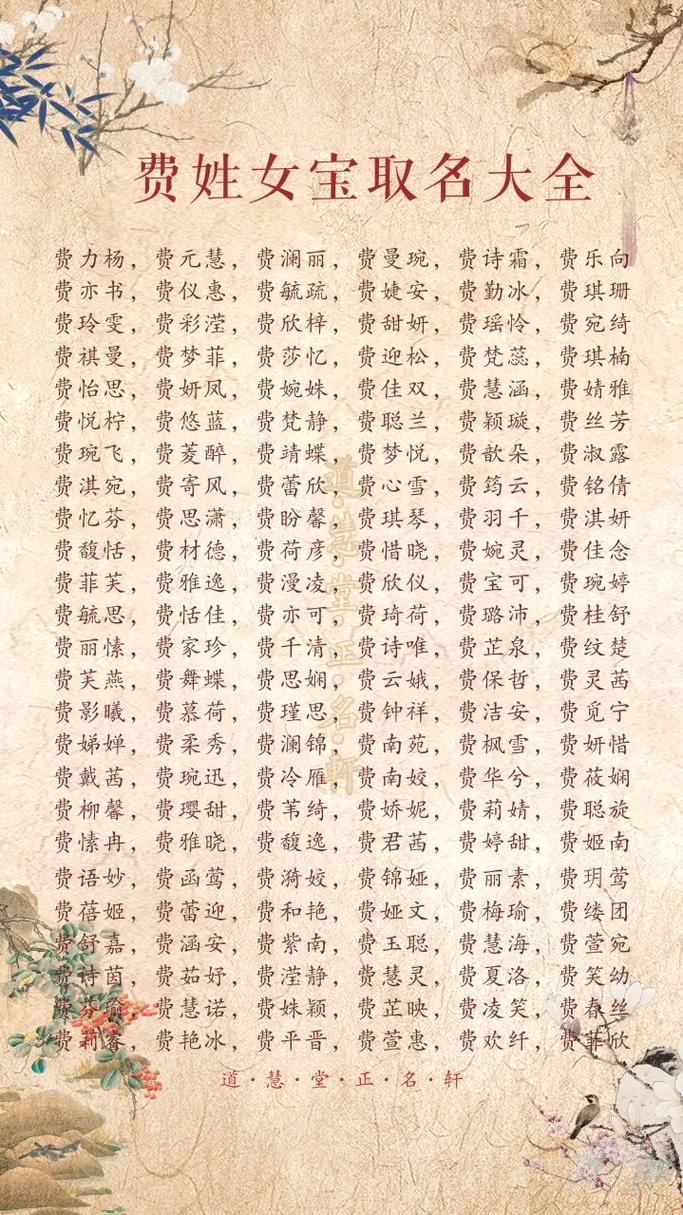 费姓女宝取名大全
费力杨，费元慧，费澜丽，费曼琬，费诗霜，费乐向
费亦书，费仪惠，费毓疏，费婕安，费勤冰，费琪珊
费玲雯，费彩滢，费欣梓，费甜妍，费瑶怜，费宛绮
费祺曼，费梦菲，费莎忆，费迎松，费梵蕊，费琪楠
费怡思，费妍凤，费婉姝，费佳双，费慧涵，费婧雅
费悦柠，费悠蓝，费梵静，费聪兰，费颖璇，费丝芳
费琬飞，费菱醉，费靖蝶，费梦悦，费歆朵，费淑露
费淇宛，费寄风，费蕾欣，费心雪，费筠云，费铭倩
费忆芬，费思潇，费盼馨，费琪琴，费羽千，费淇妍
费馥恬，费材德，费荷彦，费惜晓，费婉灵，费佳念
费菲芙，费雅逸，费漫凌，费欣仪，费宝可，费琬婷
费毓思，费恬佳，费亦可，费琦荷，费璐沛，费桂舒
费丽愫，费家珍，费千清，费诗唯，费芷泉，费纹楚
费芙燕，费舞蝶，费思娴，费云娥，费保哲，费灵茜
费影曦，费慕荷，费瑾思，费钟祥，费洁安，费觅宁
费娣婵，费柔秀，费澜锦，费南苑，费枫雪，费妍惜
费戴茜，费琬迅，费冷雁，费南姣，费华兮，费莜娴
费柳馨，费璎甜，费苇绮，费娇妮，费莉婧，费聪旋
费愫冉，费雅晓，费馥逸，费君茜，费婷甜，费姬南
费语妙，费函莺，费漪姣，费锦娅，费丽素，费玥莺
费蓓姬，费蕾迎，费和艳，费娅文，费梅瑜，费缕团
费舒嘉，费涵安，费紫南，费玉聪，费慧海，费萱宛
费诗茵，费茹妤，费滢静，费慧灵，费夏洛，费笑幼
费芬瑜，费慧诺，费姝颖，费芷映，费凌笑，费春丝
费莉睿，费艳冰，费平晋，费萱惠，费欢纤，费菲欣
道·慧·堂·正·名·轩
道·慧·堂·正·名·轩